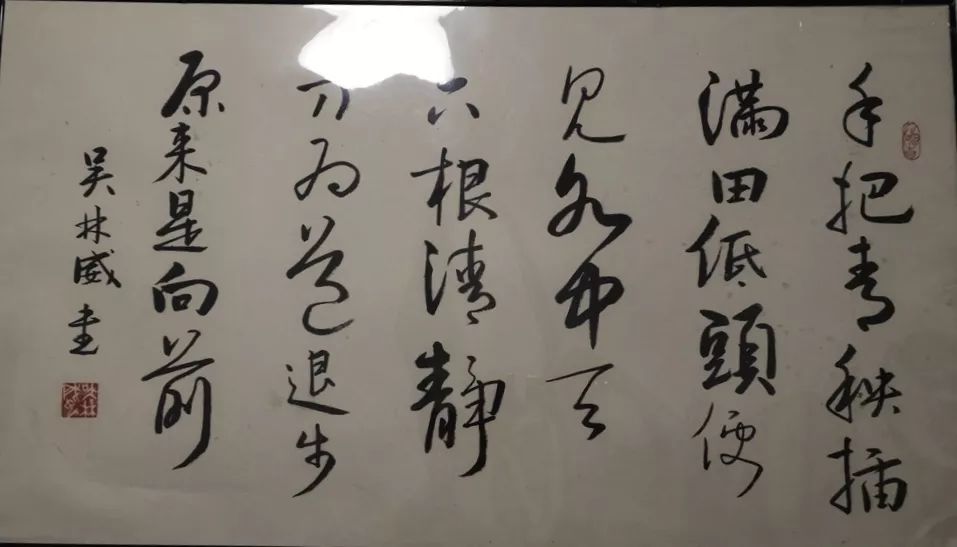 手把青秧插
满田低頭便
見水中天
六根清静
方为道退步
原来是向前
吴林威書